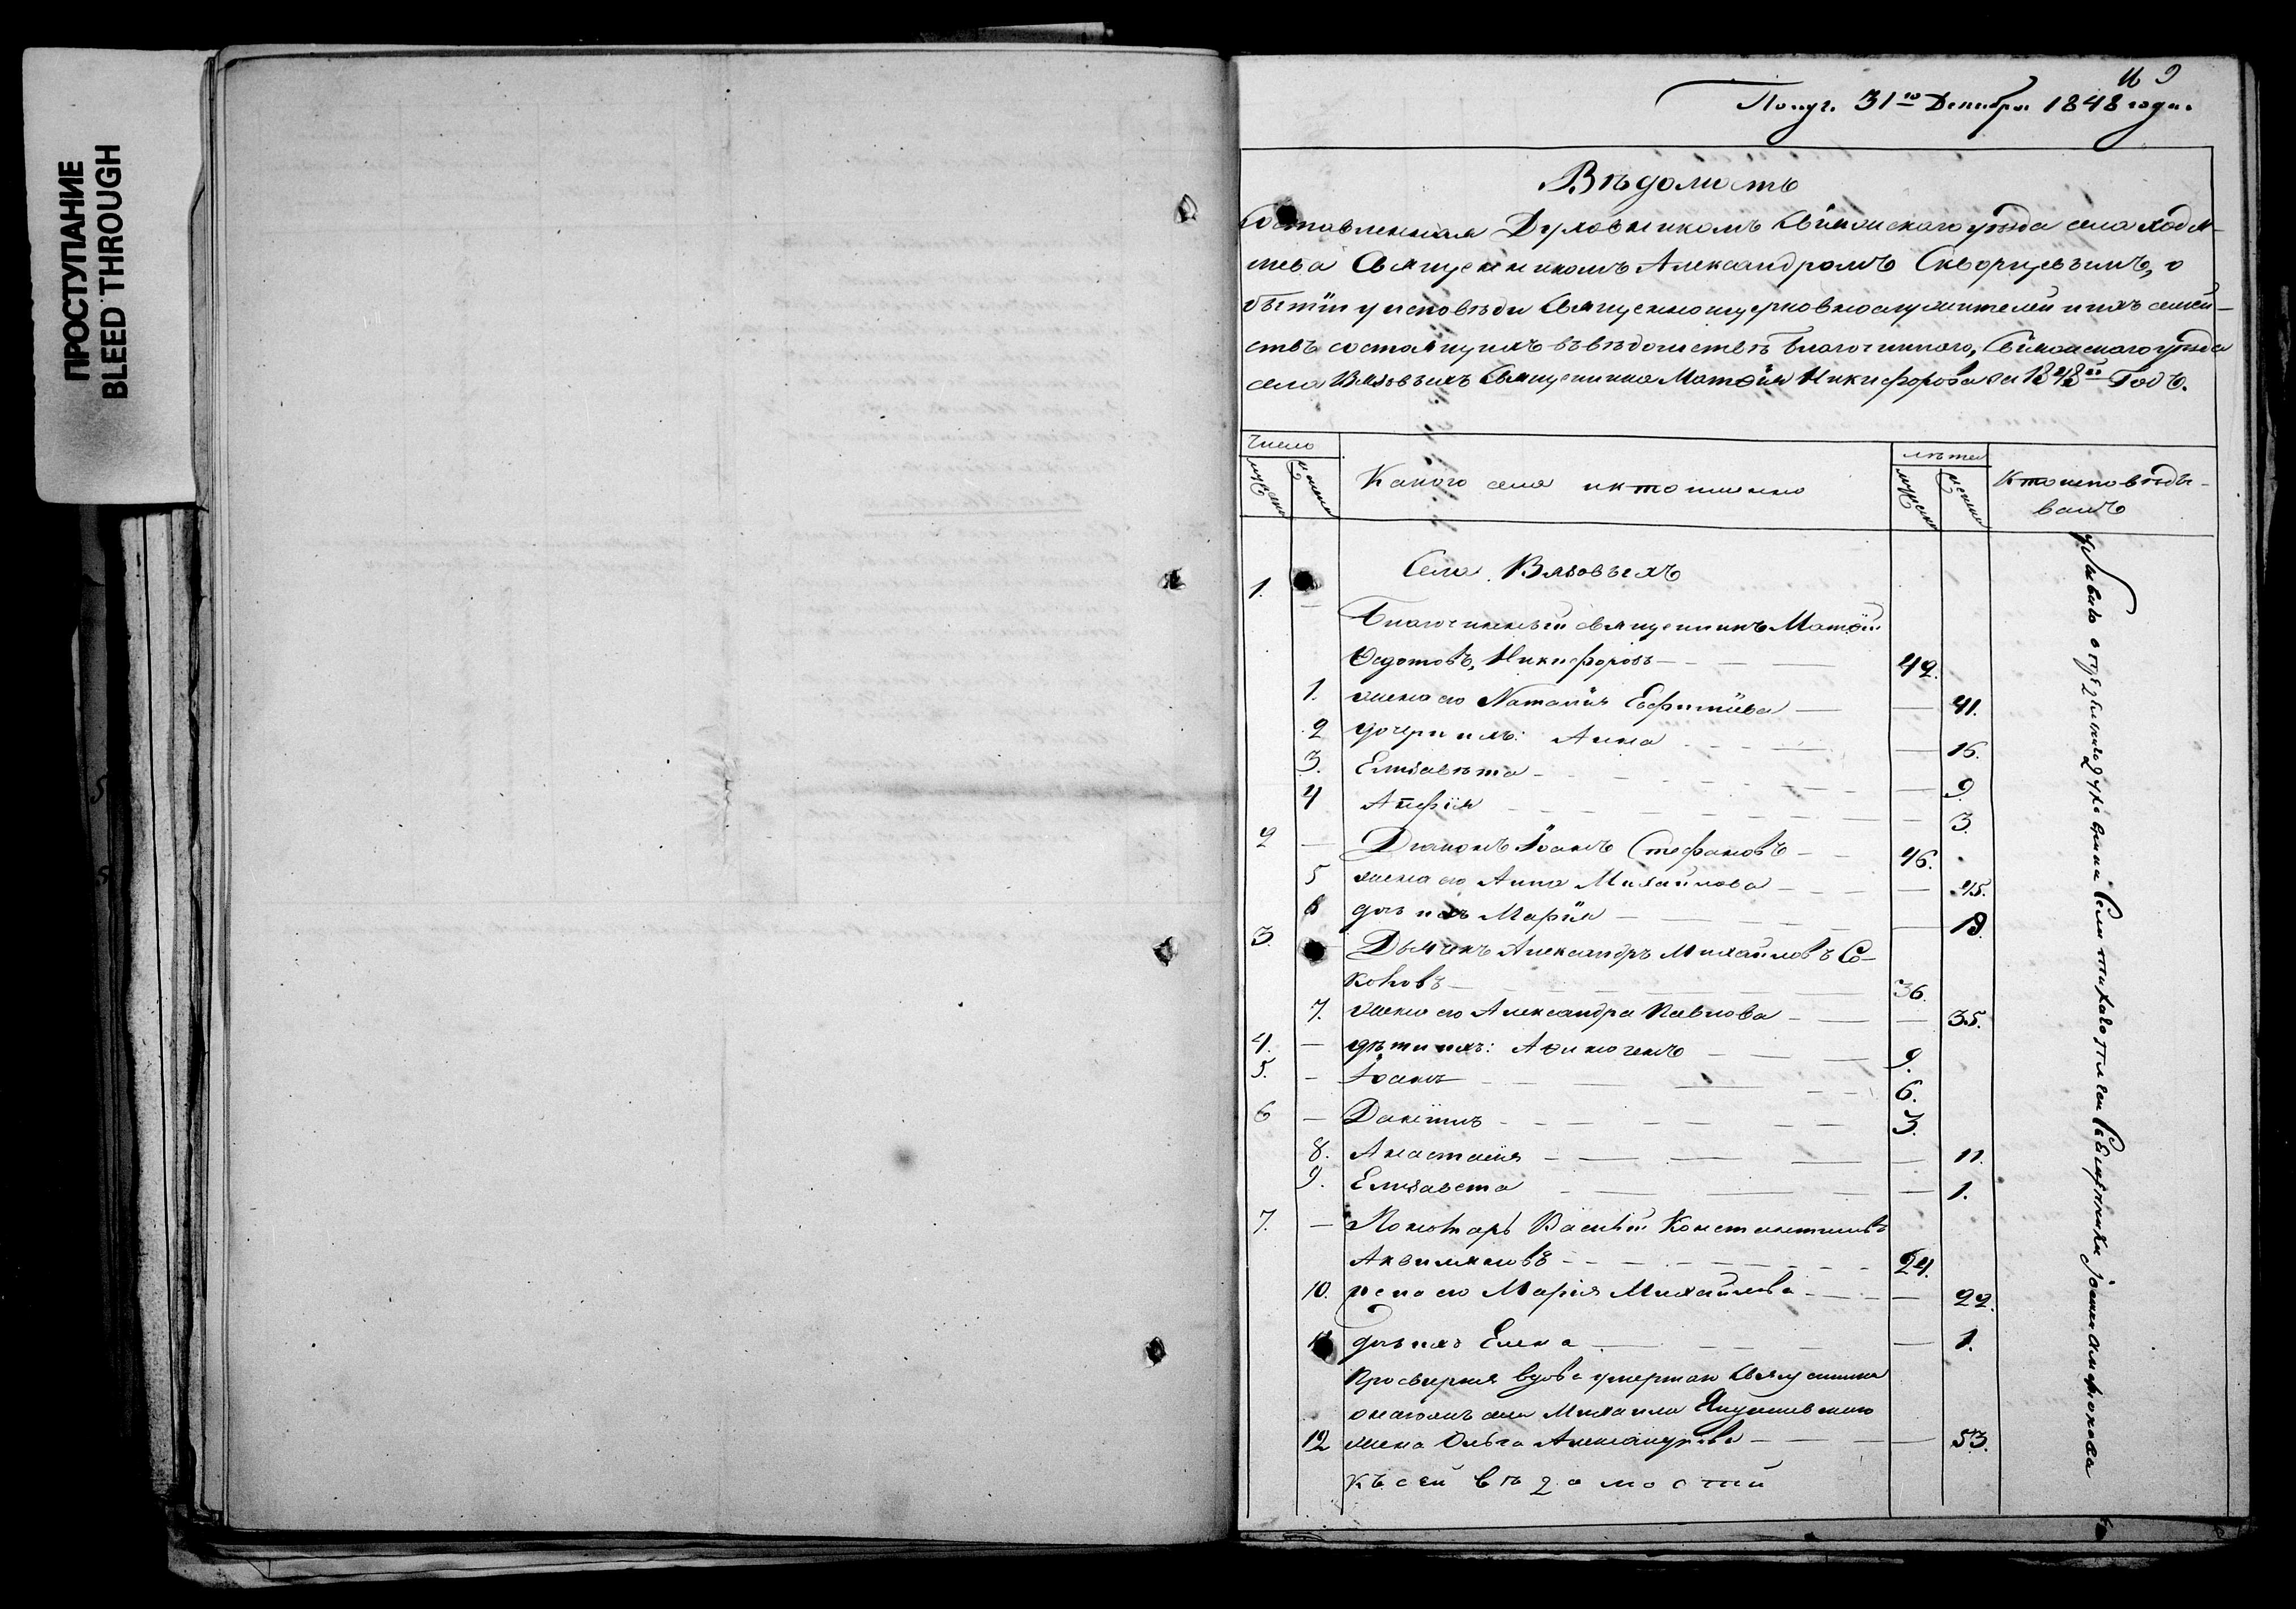 ПРОСТУПАНИЕ
BLEED THROUGH
Получ. 31го Декабря 1848 года.
Вѣдомость
Составленная Духовникомъ Свіяжскаго уѣзда села Ходя-
шева Священникомъ Александромъ Скворцевымъ, о
бытіи у исповѣди Священноцерковнослужителей и ихъ семей-
ствъ состоящихъ въ вѣдомствѣ Благочиннаго, Свіяжскаго уѣзда
села Вязовыхъ Священника Матѳія Никифорова за 1848й Годъ.
Число
лѣта
мужеска
женска
Какого села и кто именно
мужеска
женска
Кто исповѣды-
валъ
Села Вязовыхъ
1. — Благочинный священникъ Матѳій
Ѳедотовъ, Никифоровъ — 49.
1. жена его Наталія Евфиміева — — 41.
2 дочери ихъ: Анна — 16.
3. Елизавѣта — 9.
4 Апфія — 3.
2 — Діаконъ Іоаннъ Стефановъ — 46.
5 жена его Анна Михайлова — 45.
6 дочь ихъ Марія — 19.
3. Дьячекъ Александръ Михайловъ Со-
коловъ — 36.
7. жена его Александра Павлова — 35.
4. — дѣти ихъ: Аѳиногенъ — 9.
5. — Іоаннъ — 6.
6 — Даніилъ — 3.
8. Анастасія — 11.
9. Елизавета — 1.
7. — Пономарь Василій Константиновъ
Аквиляновъ — 24.
10. жена его Марія Михайлова — 22.
11 дочь ихъ Елена — 1.
Просвирня вдова умершаго Священника
онагожъ села Михаила
12 жена Ольга Александрова — 53.
къ сей вѣдомостй